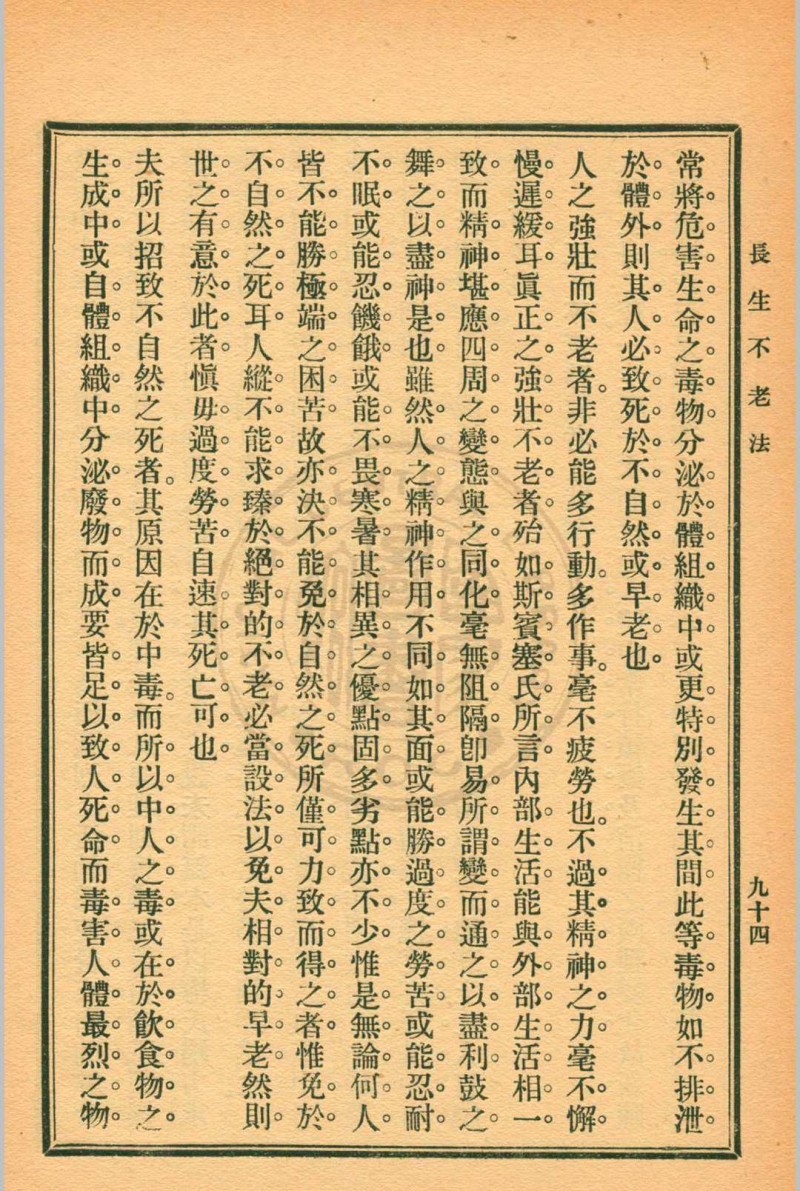 長生不老法
九十四
常將危害生命之毒物分泌於體組織中或更特別發生其間此等毒物如不排泄
於體外則其人必致死於不自然或早老也。
人之強壯而不老者。非必能多行動。多作事。毫不疲勞也。不過其精神之力毫不懈
慢遲緩耳眞正之強壯不老者殆如斯賓塞氏所言內部生活能與外部生活相一
致而精神堪應四周之變態與之同化毫無阻隔卽易所謂變而通之以盡利鼓之
舞之以盡神是也雖然人之精神作用不同如其面或能勝過度之勞苦或能忍耐
不眠或能忍饑餓或能不畏寒暑其相異之優點固多劣點亦不少惟是無論何人
皆不能勝極端之困苦故亦決不能免於自然之死所僅可力致而得之者惟免於
不自然之死耳人縱不能求臻於絕對的不老必當設法以免夫相對的早老然則
世之有意於此者愼毋過度勞苦自速其死亡可也。
夫所以招致不自然之死者。其原因在於中毒。而所以中人之毒或在於飮食物之
生成中或自體組織中分泌廢物而成要皆足以致人死命而毒害人體最烈之物